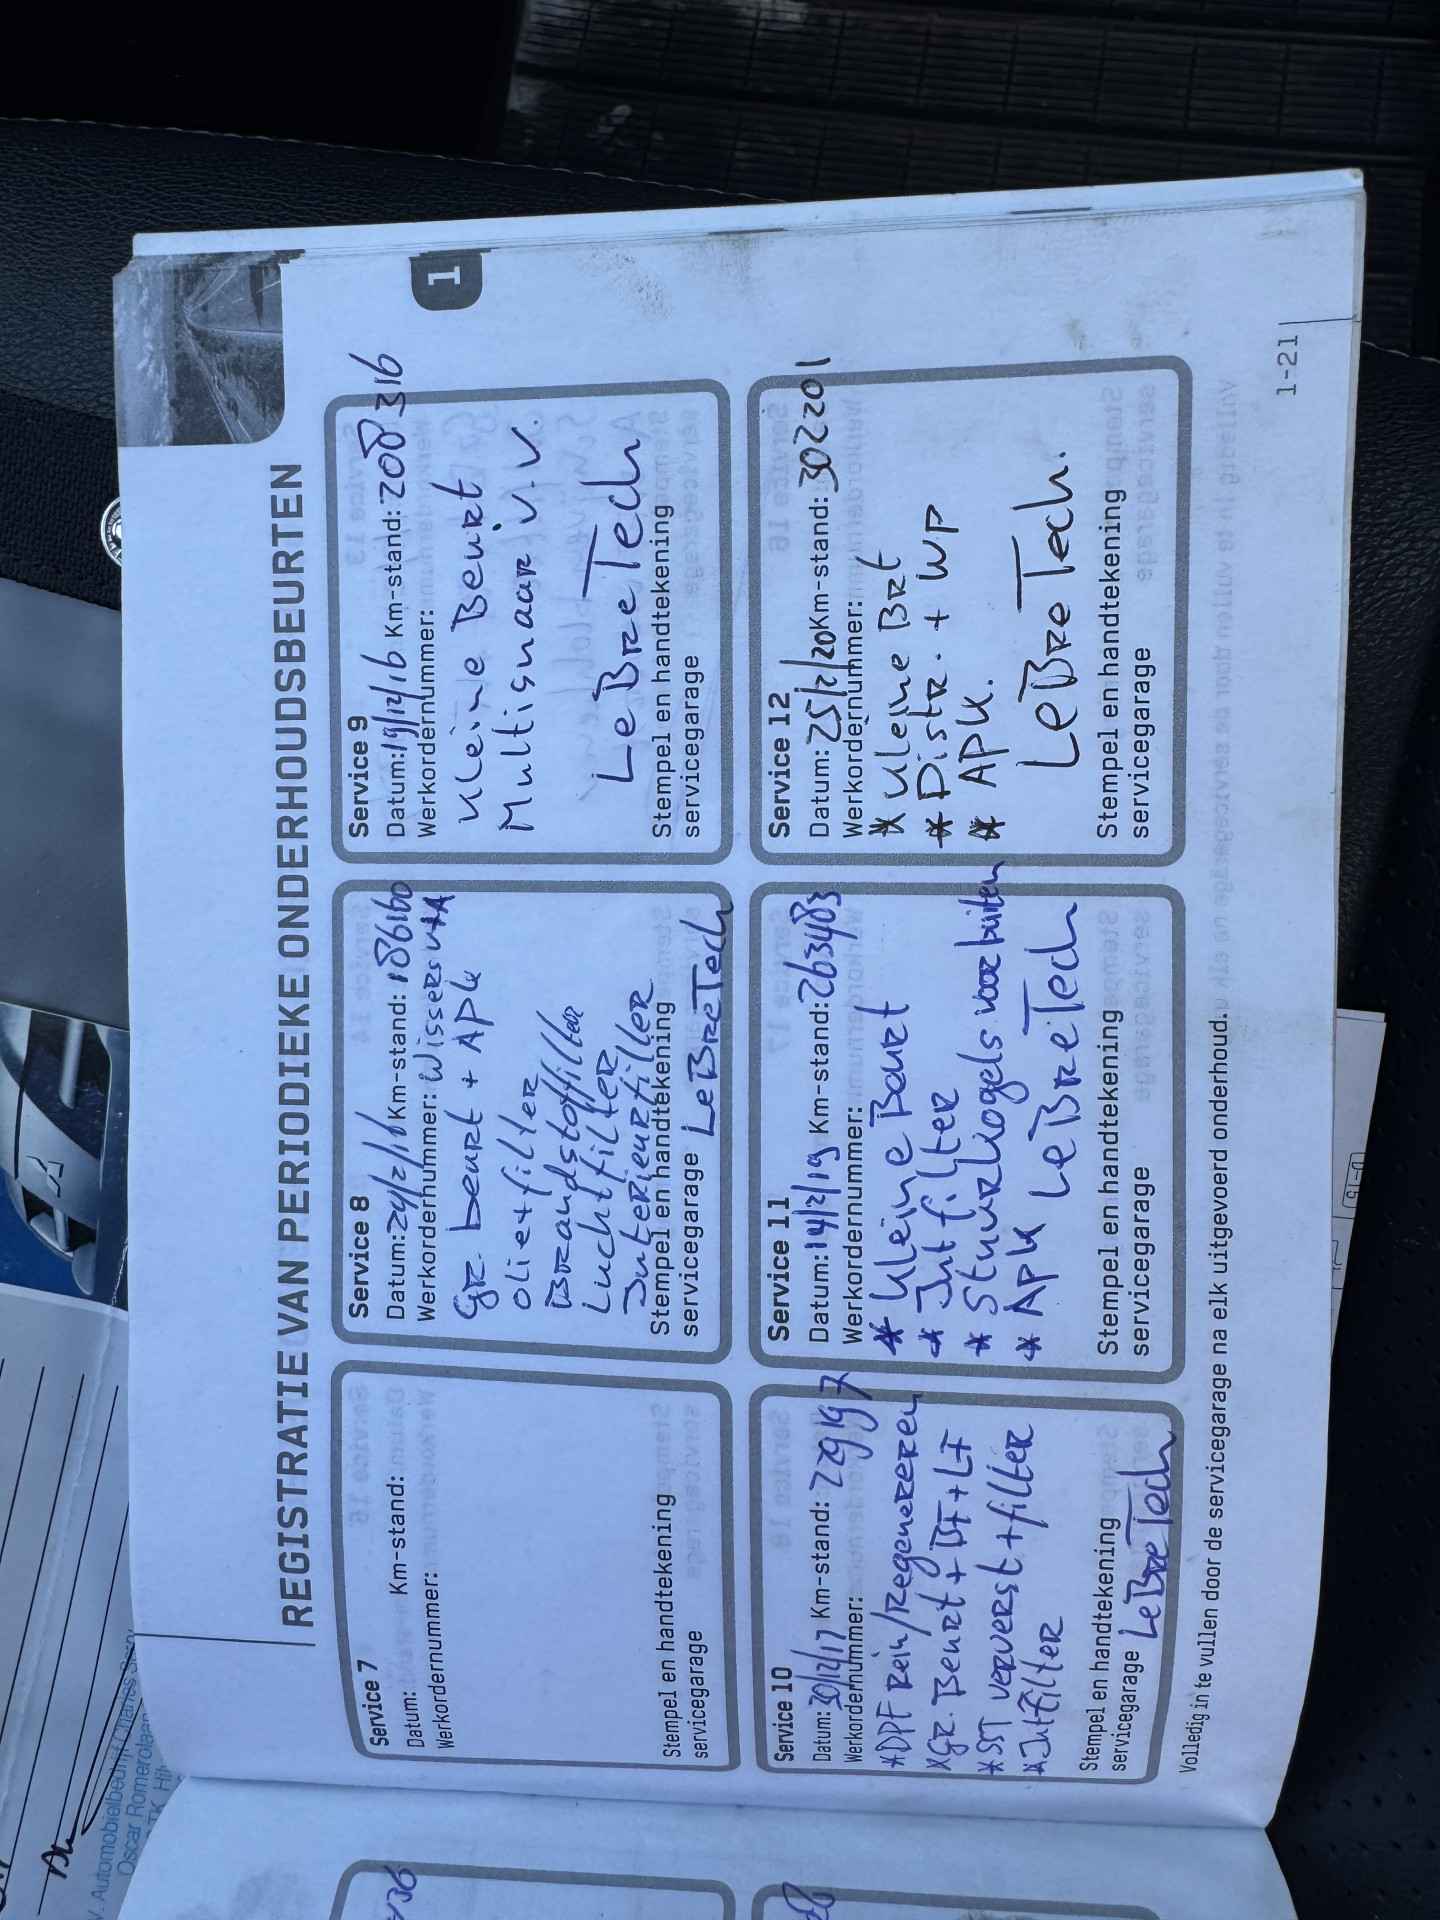 REGISTRATIE VAN PERIODIEKE ONDERHOUDSBEURTEN
1
Service 7
Datum: Km-stand:
Werkordernummer:
Stempel en handtekening
servicegarage
Service 8
Datum: 24/2/16 Km-stand: 186160
Werkordernummer: Wissers V+A
GR. beurt + APK
Oliefilter
Brandstoffilter
Luchtfilter
Interieurfilter
Stempel en handtekening
servicegarage LeBreTech
Service 9
Datum: 19/12/16 Km-stand: 208316
Werkordernummer:
Kleine Beurt
Multisnaar v.v.
LeBreTech
Stempel en handtekening
servicegarage
Service 10
Datum: 30/12/17 Km-stand:
Werkordernummer:
* DPF Rein/Regenereren
* GR. Beurt + BF + LF
* ververst + filter
* Intfilter
Stempel en handtekening
servicegarage LeBreTech
Service 11
Datum: 14/2/19 Km-stand: 263483
Werkordernummer:
* Kleine Beurt
* Intfilter
* Stuurkogels voor buiten
* APK LeBreTech
Stempel en handtekening
servicegarage
Service 12
Datum: 25/2/20 Km-stand: 302201
Werkordernummer:
* Kleine BRT
* Distr. + WP
* APK.
LeBreTech.
Stempel en handtekening
servicegarage
Volledig in te vullen door de servicegarage na elk uitgevoerd onderhoud.
1-21
Automobielbedrijf Charles
Oscar